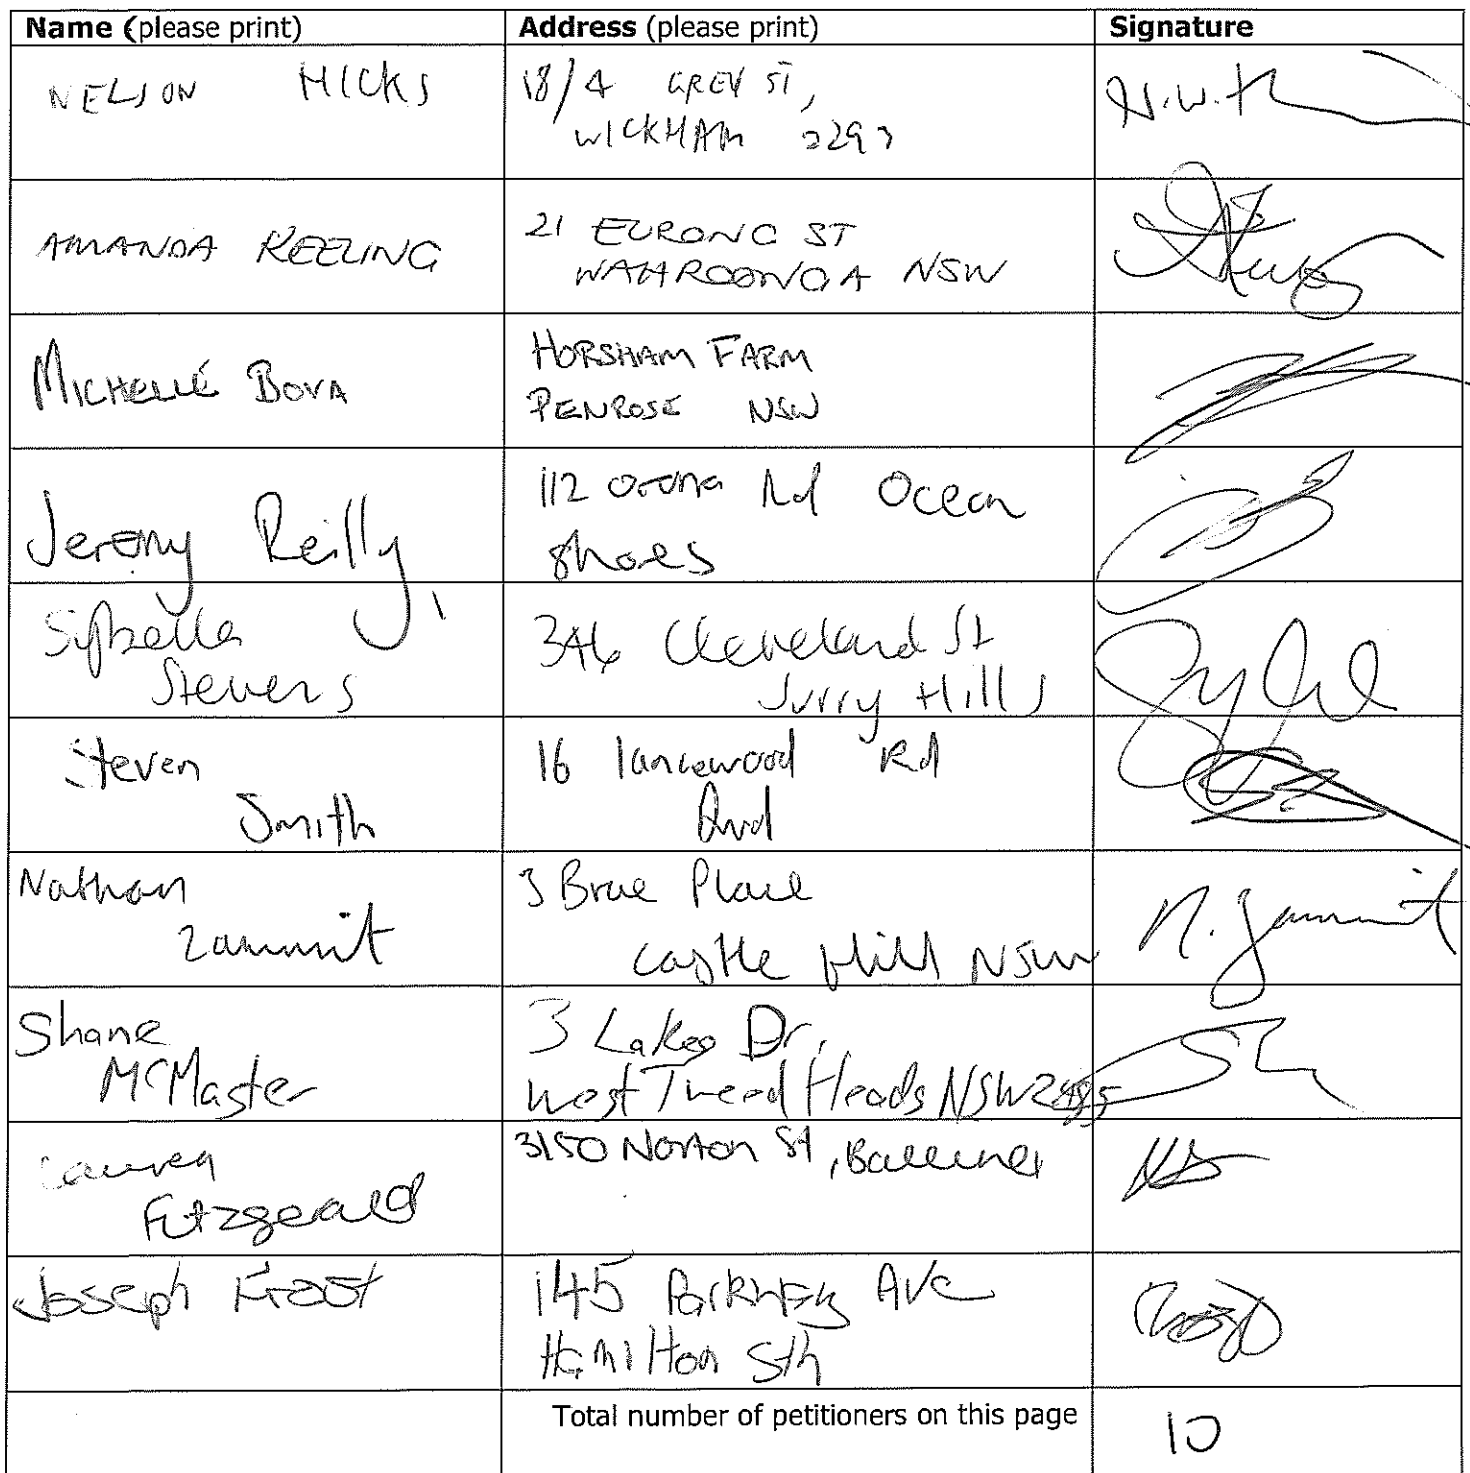 Name (please print) Address (please print) Signature
NELSON HICKS
18/4 GREY ST,
WICKHAM 2293
N.W.H
AMANDA KEELING
21 EURONG ST
WAHROONGA NSW
MICHELLE BOVA
HORSHAM FARM
PENROSE NSW
Jeremy Reilly
112 Orana Rd Ocean
Shores
Stevens
346 Cleveland St
Surry Hills
Steven
Smith
16 lancewood Rd
Nathan
Zammit
3 Place
Castle Hill NSW
N. Zammit
Shane
McMaster
3 Lakes Dr,
West Tweed Heads NSW 2485
Lauren
Fitzgerald
3150 Norton St,
Joseph Frost
145 Parkway Ave
Hamilton Sth
Total number of petitioners on this page 10